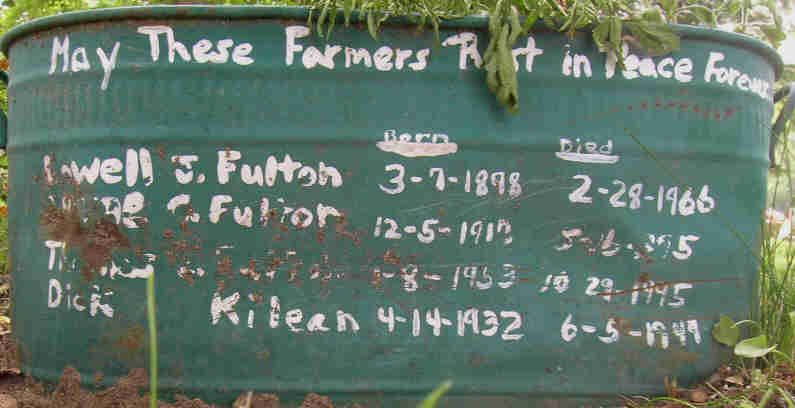 May These Farmers Rest in Peace Forever
Born Died
Lowell J. Fulton 3-7-1898 2-28-1966
C. Fulton 12-5-1917
10 29-1995
Dick Kilean 4-14-1932 6-5-1949